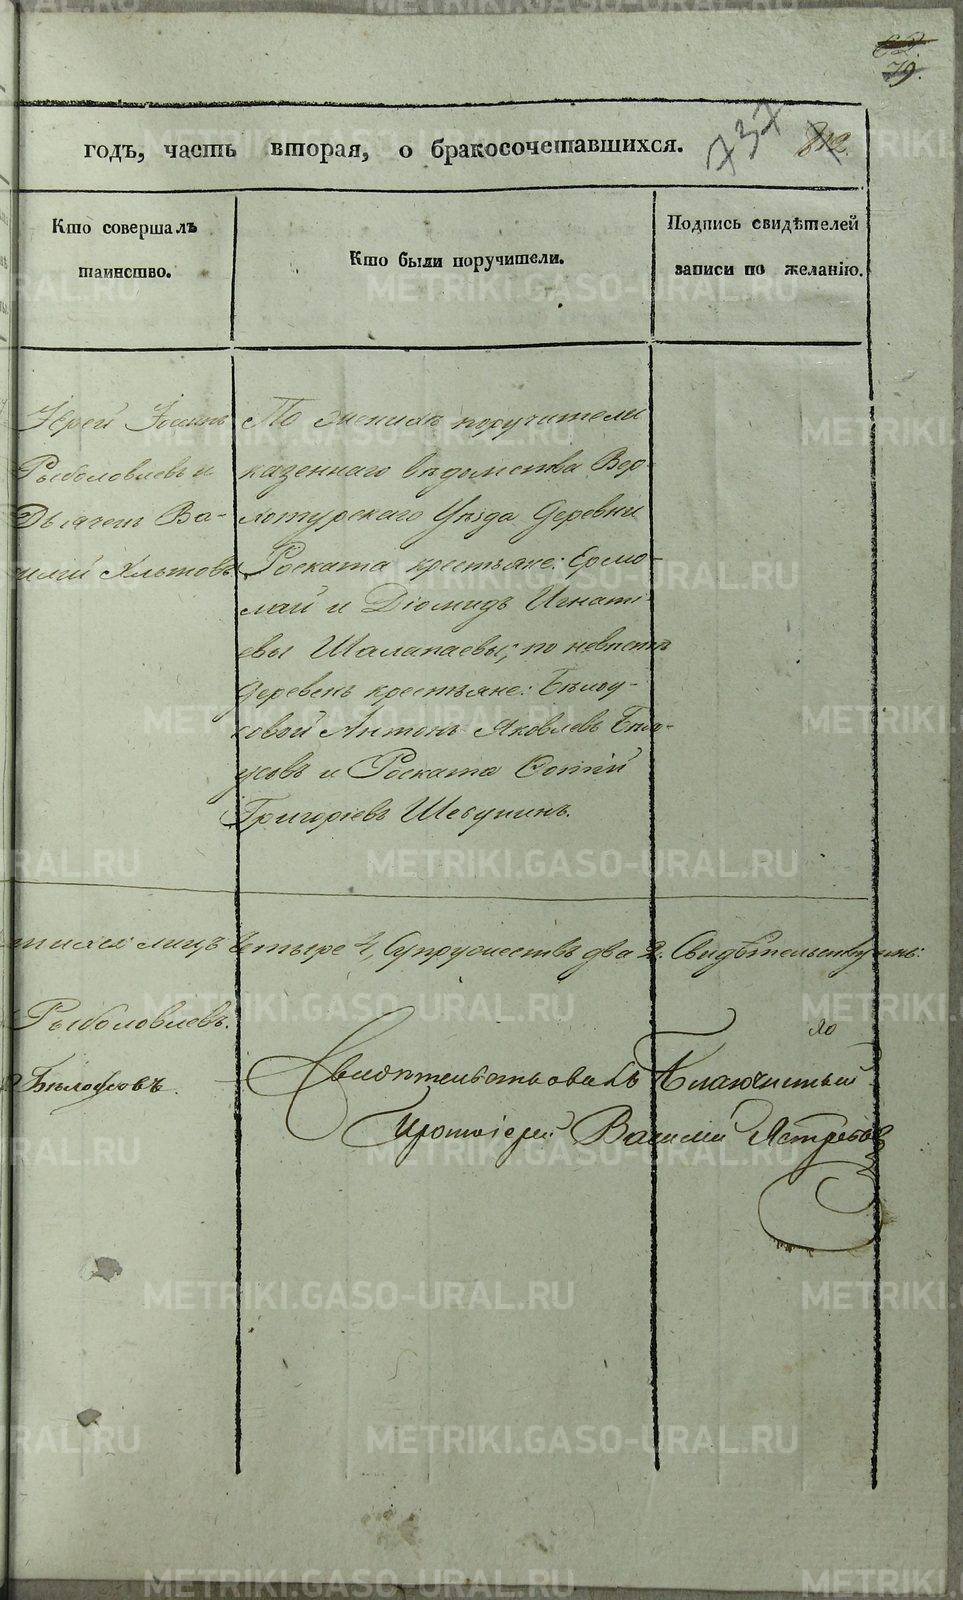 79.
годъ, часть вторая, о бракосочетавшихся.
737
Кто совершалъ
таинство.
Кто были поручители.
Подпись свидѣтелей
записи по желанію.
Іерей Іоаннъ
Рыболовлевъ и
Дьячекъ Ва-
силій Хлыновъ
По женихѣ поручители
казеннаго вѣдомства Вер-
хотурскаго Уѣзда Деревни
Роската крестьяне: Ермо-
лай и Діомидъ Игнатi-
евы Шалапаевы; по невѣстѣ
деревень крестьяне: Бѣлоу-
совой Антонъ Яковлевъ Бѣло-
усовъ и Роската
Григорьевъ Шебунинъ.
лицъ четыре 4, Супружествъ два 2. Свидѣтельствуемъ:
Рыболовлевъ.
Бѣлоусовъ
Свидѣтельствовалъ Благочинный
Протоіерей Василій Ястребовъ
METRIKI.GASO-URAL.RU